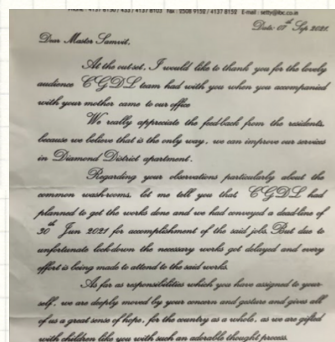 Phone : 4137 8101 4137 8103 Fax : 2508 9150 / 4137 8150 E-mail :
Date: 07th Sep 2021.
Dear Master Samvit,
At the outset, I would like to thank you for the lovely
audience CGDL team had with you when you accompanied
with your mother came to our office
We really appreciate the feed-back from the residents,
because we believe that is the only way, we can improve our services
in Diamond District apartment.
Regarding your observations particularly about the
common wash-rooms, let me tell you that CGDL had
planned to get the works done and we had conveyed a dead-line of
30th Jun 2021 for accomplishment of the said jobs. But due to
unfortunate lock-down the necessary works got delayed and every
effort is being made to attend to the said works.
As far as responsibilities which you have assigned to your-
self, we are deeply moved by your concern and gesture and gives all
of us a great sense of hope, for the country as a whole, as we are gifted
with children like you with such an adorable thought process.